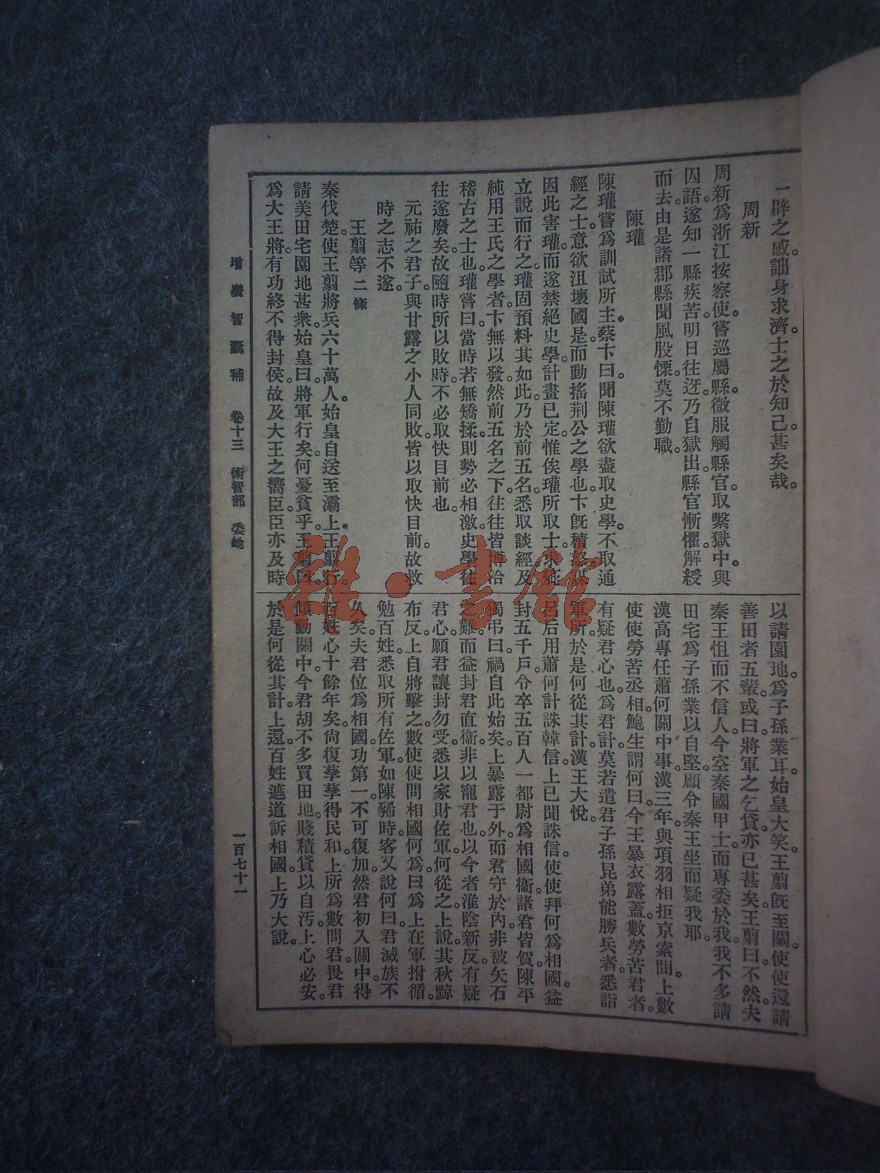 一辟之感詘身求濟士之於知己甚矣哉。
周新
周新爲浙江按察使。嘗巡屬縣微服觸縣官。取繫獄中。與
囚語。遂知一縣疾苦。明日往迓。乃自獄出。縣官慚懼解綬
而去。由是諸郡縣聞風股慄。莫不勤職。
陳瓘
陳瓘嘗爲別試所主。蔡卞曰。聞陳瓘欲盡取史學。不取通
經之士。意欲沮壞國是。而動搖荆公之學也。卞旣積怒。謀
因此害瓘。而遂禁絕史學。計畫已定。惟俟瓘所取士求疵
立說而行之。瓘固預料其如此。乃於前五名。悉取談經及
純用王氏之學者。卞無以發。然前五名之下。往往皆博洽
稽古之士也。瓘嘗曰。當時若無矯揉。則勢必相激。史學往
往遂廢矣。故隨時所以救時。不必取快目前也。
元祐之君子。與甘露之小人同敗。皆以取快目前。故救
時之志不遂。
王翦等 二條
秦伐楚。使王翦將兵六十萬人。始皇自送至灞上。王翦行。
請美田宅園地甚衆。始皇曰。將軍行矣。何憂貧乎。王翦曰。
爲大王將。有功終不得封侯。故及大王之嚮臣。臣亦及時
以請園地。爲子孫業耳。始皇大笑。王翦旣至關。使使還請
善田者五輩。或曰。將軍之乞貸。亦已甚矣。王翦曰。不然。夫
秦王怚而不信人。今空秦國甲士。而專委於我。我不多請
田宅。爲子孫業以自堅。顧令秦王坐而疑我耶。
漢高專任蕭何關中事。漢三年。與項羽相拒京索間。上數
使使勞苦丞相。鮑生謂何曰。今王暴衣露蓋。數勞苦君者。
有疑君心也。爲君計。莫若遣君子孫昆弟能勝兵者。悉詣
軍所。於是何從其計。漢王大悅。
呂后用蕭何計誅韓信。上已聞誅信。使使拜何爲相國。益
封五千戶。令卒五百人。一都尉爲相國衞。諸君皆賀。陳平
獨弔曰。禍自此始矣。上暴露于外。而君守於內。非被矢石
之難。而益封君直衞。非以寵君也。以今者淮陰新反。有疑
君心。願君讓封勿受。悉以家財佐軍。何從之。上說。其秋黥
布反。上自將擊之。數使使問相國何爲。曰。爲上在軍拊循。
勉百姓。悉取所有佐軍。如陳豨時。客又說何曰。君滅族不
久矣。夫君位爲相國。功第一。不可復加。然君初入關中。得
百姓心。十餘年矣。尙復孳孳得民和。上所爲數問君。畏君
傾動關中。今君胡不多買田地。賤積貸以自汚。上心必安。
於是何從其計。上還。百姓遮道訴相國。上乃大說。
增廣智囊補 卷十三 術智部 委蛇 一百七十一
雜·書館